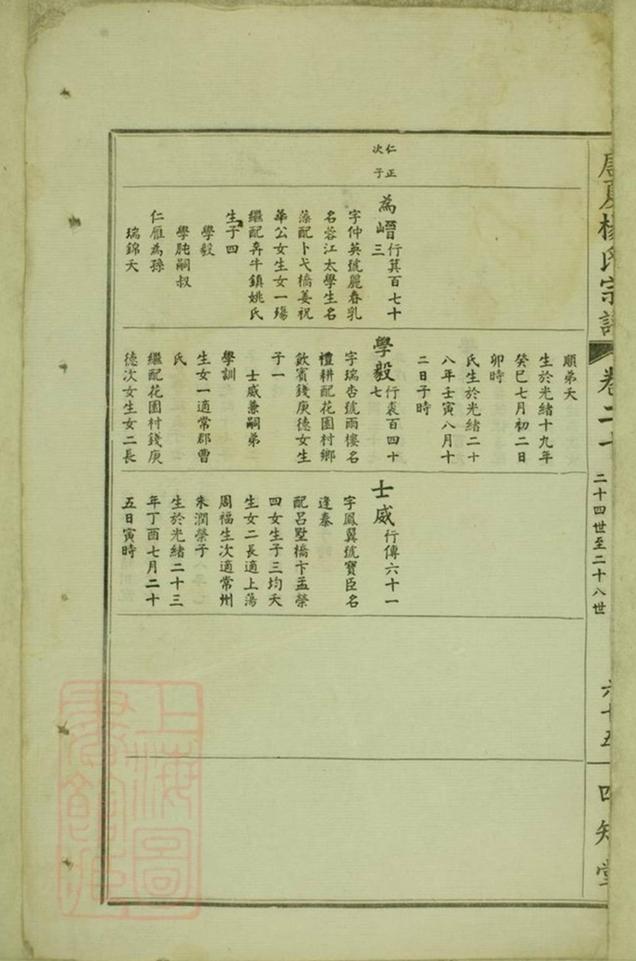 楊氏宗譜
卷二十
二十四世至二十八世
六十五
四知堂
仁正
次子
為嶆行萁百七十
三
字仲英號麗春乳
名蓉江太學生名
藻配卜弋橋姜祝
華公女生女一殤
繼配奔牛鎮姚氏
生子四
學毅
學肫嗣叔
仁雁為孫
瑞錦夭
順弟夭
生於光緒十九年
癸巳七月初二日
卯時
氏生於光緒二十
八年壬寅八月十
二日子時
學毅行裘百四十
七
字瑞杏號雨樓名
禮耕配花園村鄉
飲賓錢庚德女生
子一
士威兼嗣弟
學訓
生女一適常郡曹
氏
繼配花園村錢庚
德次女生女二長
士威行傳六十一
字鳳翼號寶臣名
逢泰
配呂墅橋卞孟榮
四女生子三均夭
生女二長適上蕩
周福生次適常州
朱潤榮子
生於光緒二十三
年丁酉七月二十
五日寅時
上海圖